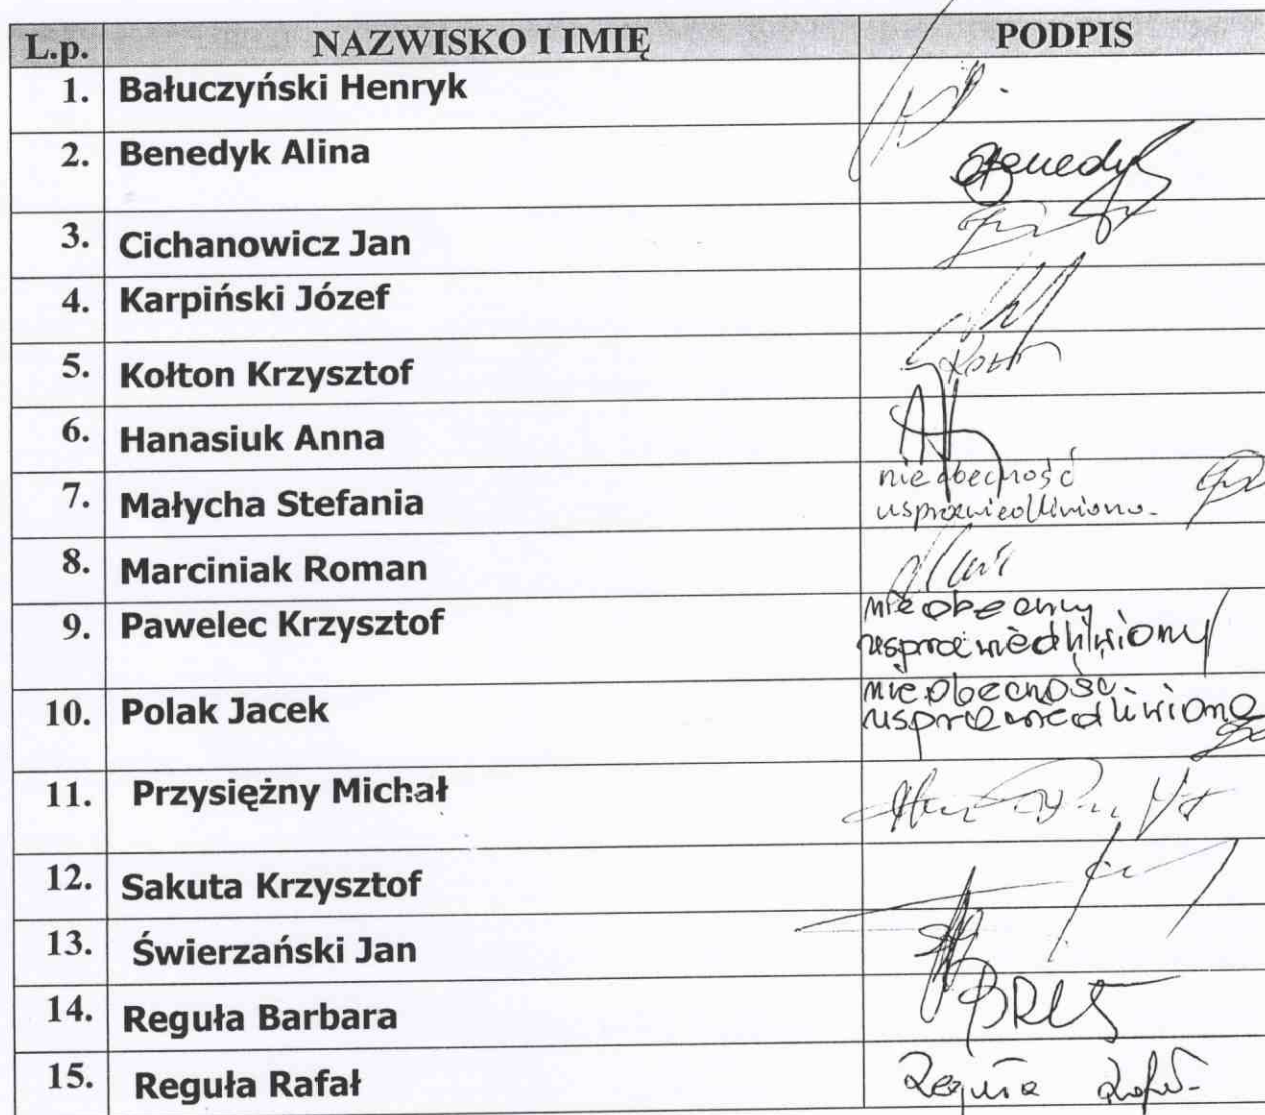 L.p. NAZWISKO I IMIĘ PODPIS
1. Bałuczyński Henryk
2. Benedyk Alina Benedyk
3. Cichanowicz Jan
4. Karpiński Józef
5. Kołton Krzysztof
6. Hanasiuk Anna
7. Małycha Stefania nieobecność
usprawiedliwiona.
8. Marciniak Roman
9. Pawelec Krzysztof nieobecny
usprawiedliwiony
10. Polak Jacek nieobecność
usprawiedliwiona
11. Przysiężny Michał
12. Sakuta Krzysztof
13. Świerzański Jan
14. Reguła Barbara
15. Reguła Rafał Reguła Rafał